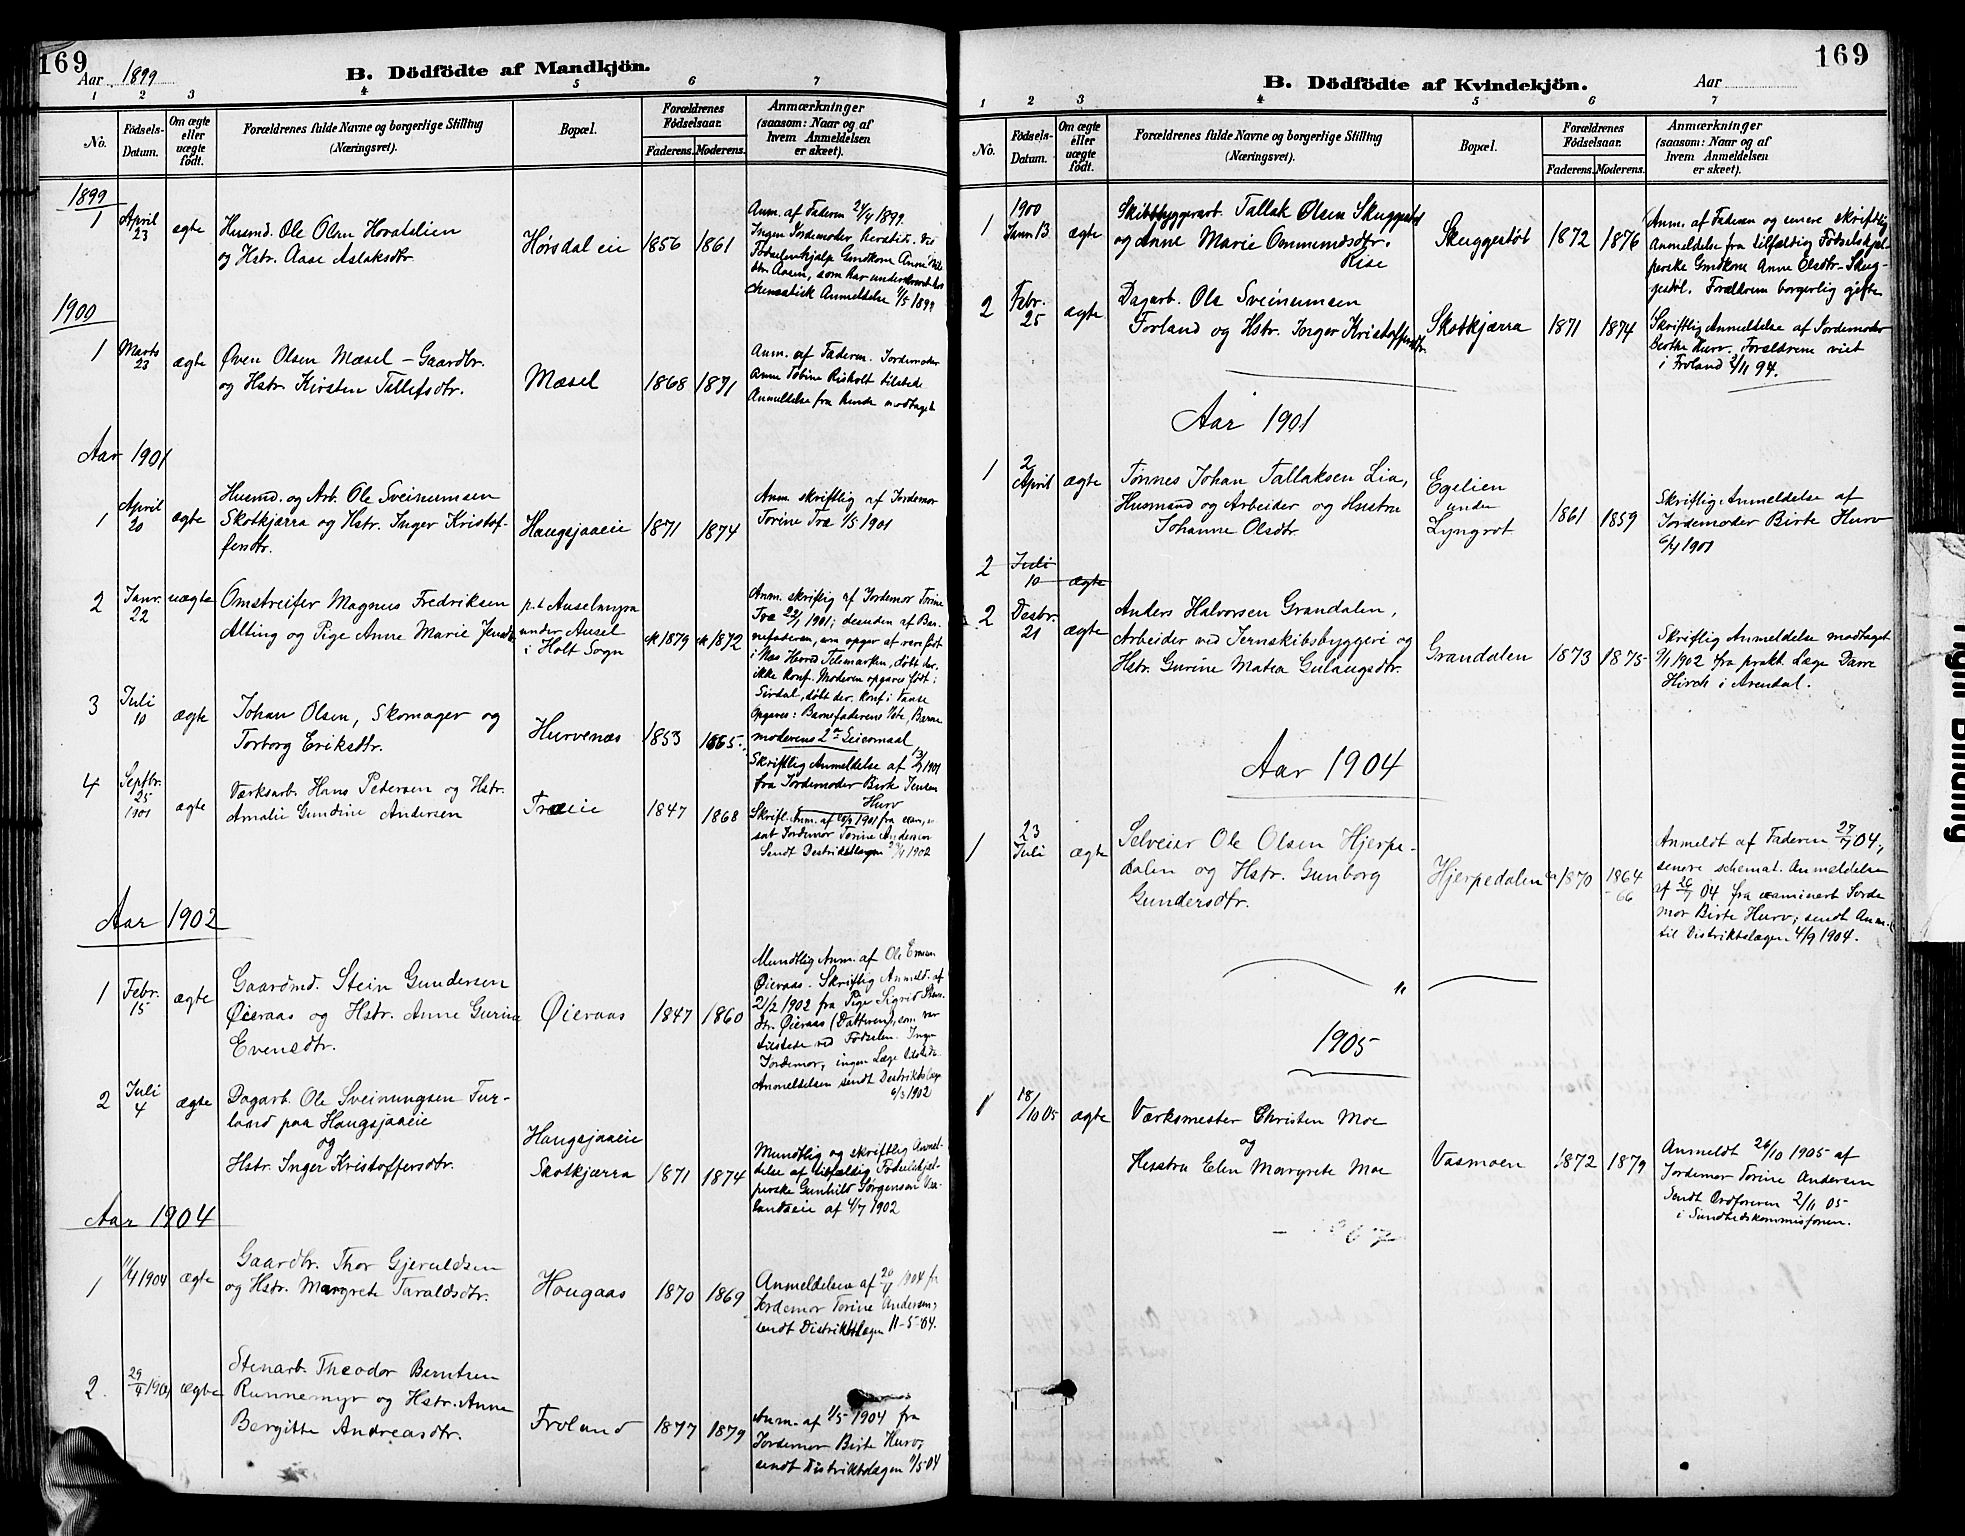 169
Aar 1899
B. Dödfödte af Mandkjön.
1 2 3 4 5 6 7
No.
Fødsels-Datum.
Om ægte eller uægte født.
Forældrenes fulde Navne og borgerlige Stilling (Næringsvei).
Bopæl.
Forældrenes Fødselsaar.
Faderens. Moderens.
Anmærkninger (saasom: Naar og af hvem Anmeldelsen er skeet).
1899
1 April 23 ægte
Husmd. Ole Olsen
og Hstr. Aase Aslaksdtr.
Hørsdaleie 1856 1861
Anm. af Faderen 24/4 1899.
Ingen Jordemoder
Fødselenhjalp Gmdkone Anne
Aasen, som har
Anmeldelse 1/5 1899
1900
1 Marts 23 ægte
Øven Olsen Mæsel – Gaardbr.
og Hstr. Kirsten Tellefsdtr.
Mæsel 1868 1871
Anm. af Faderen. Jordemoder
Anne Tobine Risholt tilstede
Anmeldelse fra hende modtaget
Aar 1901
1 April 20 ægte
Husmd. og Arb. Ole Sveinumsen
Skotkjærra og Hstr. Inger Kristof-
fersdtr.
Haugsjaaeie 1871 1874
Anm. skriftlig af Jordemor
Torine Træ 1/5 1901
2 Janr. 22 uægte
Omstreifer Magnus Fredriksen
Alting og Pige Anne Marie
p.t. Auselmyra
under Ausel
i Holt Sogn
1879 1872
Anm. skriftlig af Jordemor Torine
Træ 22/1 1901; desuden af Bar-
nefaderen, som opgav at være født
i Næs Herred Telemarken, døbt der,
ikke konf. Moderen opgaves født i
Sirdal, døbt der, konf. i Vanse
Opgaves: Barnefaderens 1ste, Barne
moderens 2det Leiermaal
3 Juli 10 ægte
Johan Olsen, Skomager og
Torborg Eriksdtr.
Hurvenæs 1853 1865
Skriftlig Anmeldelse af 13/7 1901
fra Jordemoder Birte Jensen
Hurv
4 Septbr. 25 1901 ægte
Værksarb. Hans Petersen og Hstr.
Amalie Gundine Andersen
Træeie 1847 1868
Skriftl. Anm. af 1901 fra exami-
nert Jordemor Torine Andersen
Sendt Destriktslægen 1902
Aar 1902
1 Febr. 15 ægte
Gaardmd. Stein Gundersen
Øieraas og Hstr. Anne Gurine
Evensdtr.
Øieraas 1847 1860
Mundtlig Anm. af Ole Evensen
Øieraas. Skriftlig Anmeld. af
21/2 1902 fra Pige Sigrid Stens-
dtr. Øieraas (Datteren), som var
tilstede ved Fødselen. Ingen
Jordemor, ingen Læge tilstede.
Anmeldelsen sendt Destriktslæge
6/3 1902
2 Juli 4 ægte
Dagarb. Ole Sveinungsen Fur-
land paa Haugsjaaeie
og
Hstr. Inger Kristoffersdtr.
Haugsjaaeie
Skotkjærra 1871 1874
Mundtlig og skriftlig Anmel-
delse af tilfældig Fødselshjæl-
perske Gunhild Jørgensen
af 4/7 1902
Aar 1904
1 11/4 1904 ægte
Gaardbr. Thor Gjeruldsen
og Hstr. Margrete Taraldsdtr.
Hougaas 1870 1869
Anmeldelsen af 20/4 1904 fr
Jordemor Torine Andersen;
sendt Distriktslægen 11-5-04.
2. 29/4 1904 ægte
Stenarb. Theodor Berntsen
Runnemyr og Hstr. Anne
Bergitte Andreasdtr.
Froland 1877 1879
Anm. af 1/5 1904 fra
Jordemor Birte Hurv;
sendt Distriktslægen 11/5 04
169
B. Dödfödte af Kvindekjön.
Aar
1 2 3 4 5 6 7
No.
Fødsels-Datum.
Om ægte eller uægte født.
Forældrenes fulde Navne og borgerlige Stilling (Næringsvei).
Bopæl.
Forældrenes Fødselsaar.
Faderens. Moderens.
Anmærkninger (saasom: Naar og af hvem Anmeldelsen er skeet).
1900
1 Janr. 13 ægte
Skibbyggerarb. Tallak Olsen Skuggestøl
og Anne Marie Ommundsdtr.
Rise
Skuggestøl 1872 1876
Anm. af Faderen og senere skriftlig
Anmeldelse fra tilfældig Fødselshjæl-
perske Gmdkone Anne Olsdtr. Skug-
gestøl. Forældrene borgerlig gifte
2 Febr. 25 ægte
Dagarb. Ole Sveinumsen
Forland og Hstr. Inger Kristoffersdtr.
Skotkjærra 1871 1874
Skriftlig Anmeldelse af Jordemoder
Birthe Hurv. Forældrene viet
i Froland 2/11 94.
Aar 1901
1 2 April ægte
Tønnes Johan Tallaksen Lia,
Husmand og Arbeider og Hustru
Johanne Olsdtr.
Egelien
under
Lyngrot
1861 1859
Skriftlig Anmeldelse af
Jordemoder Birte Hurv
6/4 1901
2 Juli 10 ægte
2 Desbr. 21 ægte
Anders Halvorsen Grandalen,
Arbeider ved Jernskibsbyggeri og
Hstr. Gurine Matea Gulaugsdtr.
Grandalen 1873 1875
Skriftlig Anmeldelse modtaget
1902 fra prakt. Læge Darre
Hirch i Arendal.
Aar 1904
1 23 Juli ægte
Selveier Ole Olsen Hjerpe-
dalen og Hstr. Gunborg
Gundersdtr.
Hjerpedalen 1870 1864
66
Anmeldt af Faderen 27/7 04,
senere schemat. Anmeldelse
af 26/7 04 fra examinert Jorde
mor Birte Hurv; sendt Anm.
til Distriktslægen 4/9 1904.
"
1905
1 18/10 05 ægte
Værksmester Christen Moe
og
Hustru Elen Margrete Moe
Vasmoen 1872 1879
Anmeldt 26/10 1905 af
Jordemor Torine Andersen
Sendt Ordføreren 2/11 05
i Sundhedskommisjonen.